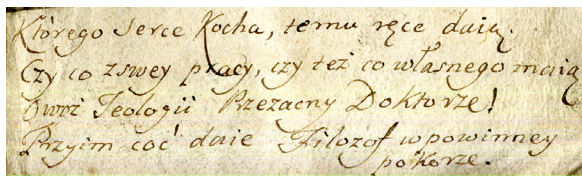 Którego serce Kocha, temu ręce daią.
Czy co zswey pracy, czy też co własnego maią
Owóż Teologii Rzezacny Doktorze!
Przyim coć daie Filozof wpowinney
pokorze.